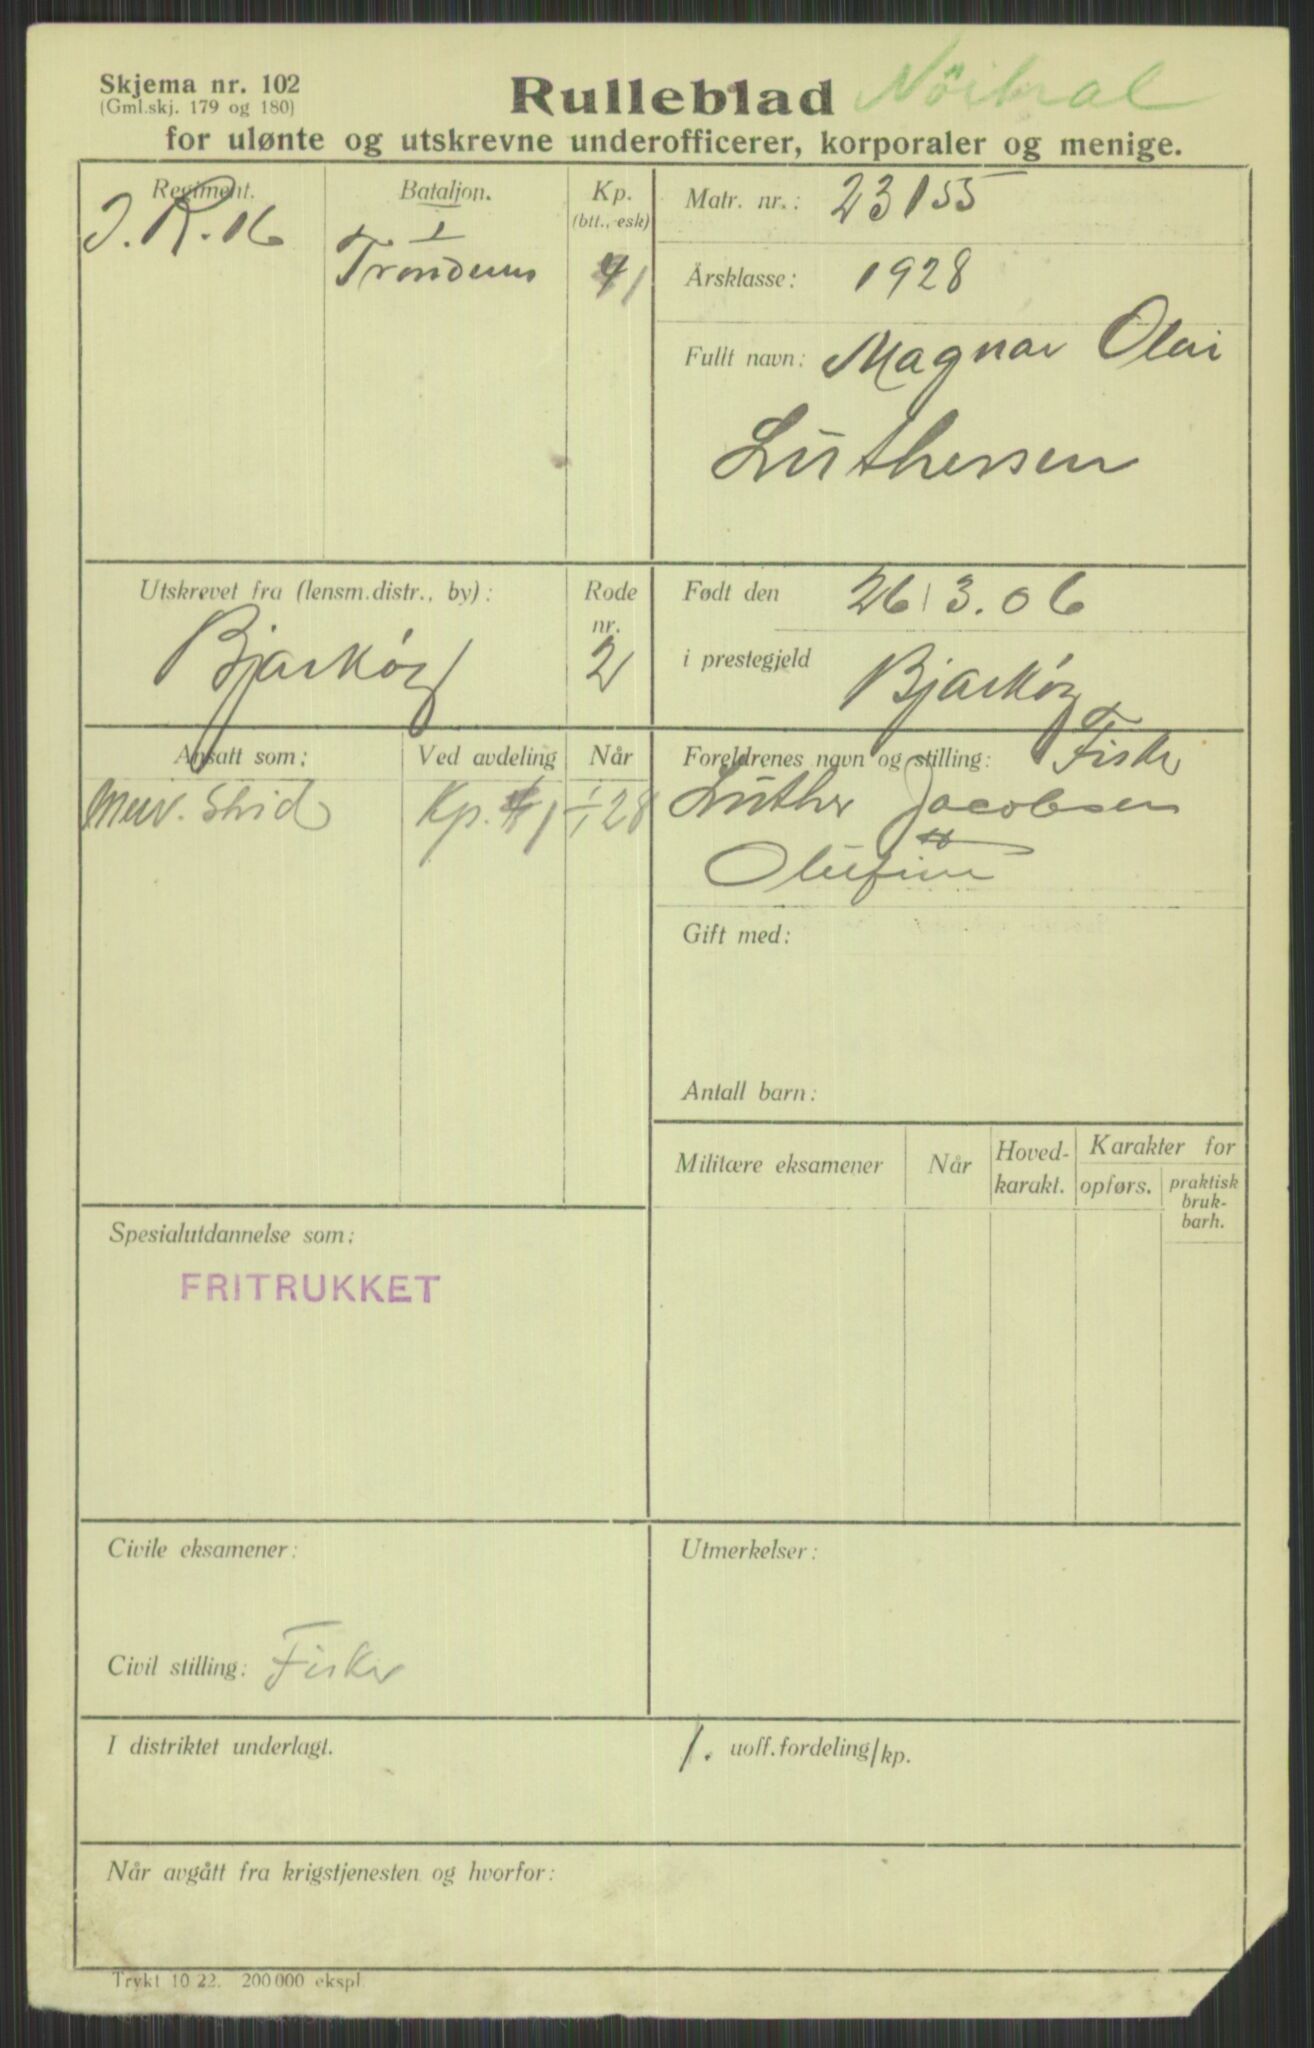 Skjema nr. 102
(Gml.skj. 179 og 180)
Rulleblad Nöitral
for ulønte og utskrevne underofficerer, korporaler og menige.
Regiment.
I. R. 16
Bataljon.
I
Trondenes
Kp.
(btt., esk)
1
Matr. nr.: 23155
Årsklasse: 1928
Fullt navn: Magnar Olai
Luthersen
Utskrevet fra (lensm.distr., by):
Bjarkøy
Rode
nr.
2
Født den 26/3.06
i prestegjeld Bjarkøy
Ansatt som:
Ved avdeling
Når
Kp. 1
28
Foreldrenes navn og stilling: Fisker
Luther Jacobsen
Olufine
Gift med:
Antall barn:
Militære eksamener
Når
Hoved-
karakt.
Karakter for
opførs.
praktisk
bruk-
barh.
Spesialutdannelse som:
FRITRUKKET
Civile eksamener:
Civil stilling: Fisker
Utmerkelser:
I distriktet underlagt.
1. uoff.fordeling/kp.
Når avgått fra krigstjenesten og hvorfor:
Trykt 10 22. 200 000 ekspl